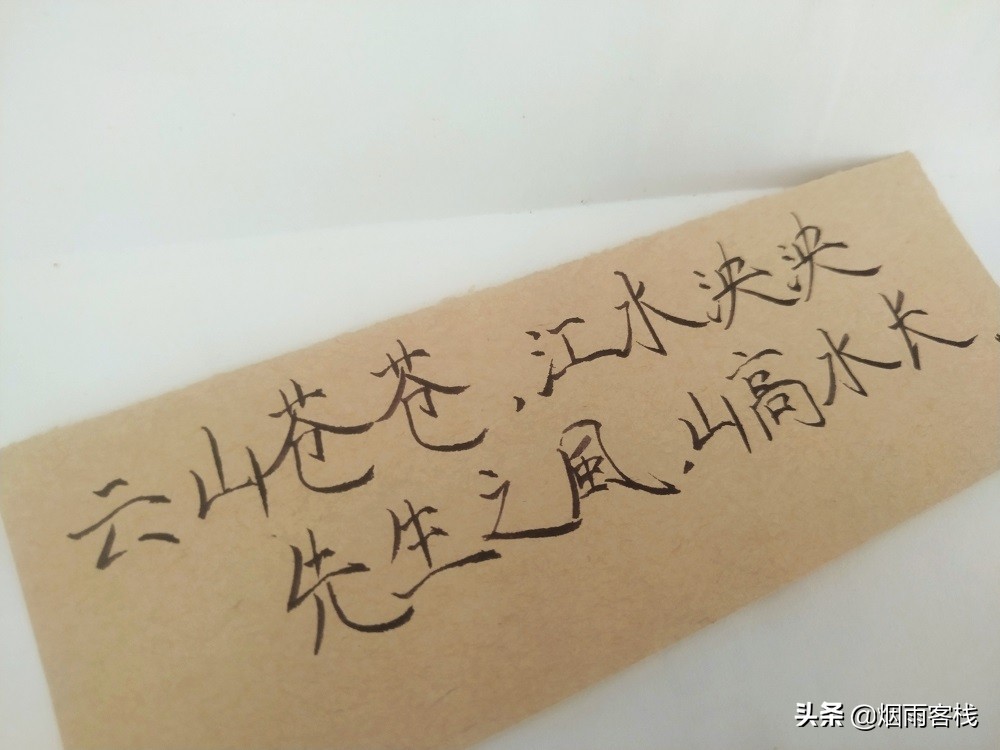 云山苍苍,江水泱泱
先生之風,山高水长.
头条 @烟雨客栈